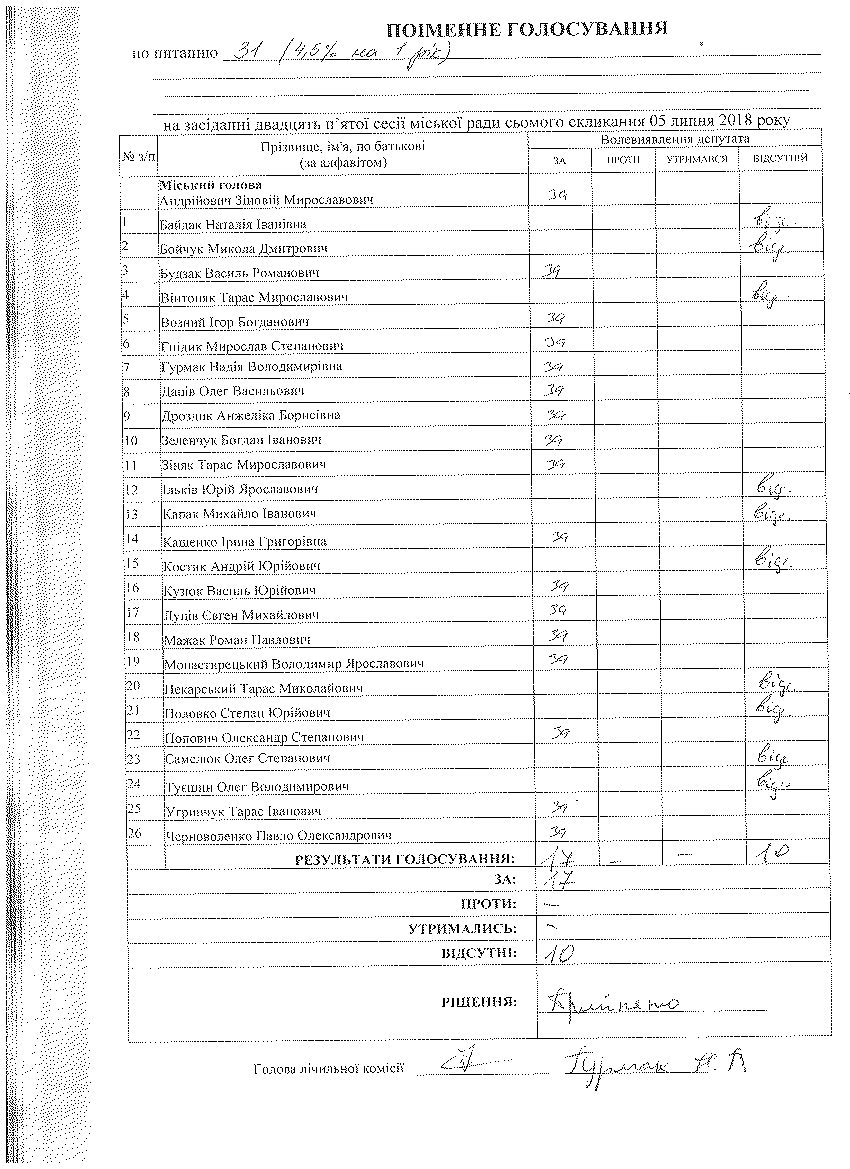 ПОІМЕННЕ ГОЛОСУВАННЯ
по питанню 31 (4,5% на 1 рік)
на засіданні двадцять п'ятої сесії міської ради сьомого скликання 05 липня 2018 року
№ з/п Прізвище, ім'я, по батькові (за алфавітом) Волевиявлення депутата
ЗА ПРОТИ УТРИМАВСЯ ВІДСУТНІЙ
Міський голова
Андрійович Зіновій Мирославович за
1 Байдак Наталія Іванівна відс.
2 Бойчук Микола Дмитрович відс.
3 Будзак Василь Романович за
4 Вінтоняк Тарас Мирославович від
5 Возний Ігор Богданович за
6 Гнідик Мирослав Степанович за
7 Гурмак Надія Володимирівна за
8 Даців Олег Васильович за
9 Дроздик Анжеліка Борисівна за
10 Зеленчук Богдан Іванович за
11 Зіняк Тарас Мирославович за
12 Ільків Юрій Ярославович відс.
13 Капак Михайло Іванович відс.
14 Кащенко Ірина Григорівна за
15 Костик Андрій Юрійович відс.
16 Кузюк Василь Юрійович за
17 Лупів Євген Михайлович за
18 Мажак Роман Павлович за
19 Монастирецький Володимир Ярославович за
20 Пекарський Тарас Миколайович відс.
21 Половко Степан Юрійович відс
22 Попович Олександр Степанович за
23 Самелюк Олег Степанович відс
24 Туєшин Олег Володимирович відс
25 Угринчук Тарас Іванович за
26 Черноволенко Павло Олександрович за
РЕЗУЛЬТАТИ ГОЛОСУВАННЯ: 17 – – 10
ЗА: 17
ПРОТИ: –
УТРИМАЛИСЬ: –
ВІДСУТНІ: 10
РІШЕННЯ: Прийнято
Голова лічильної комісії Гурмак Н. В